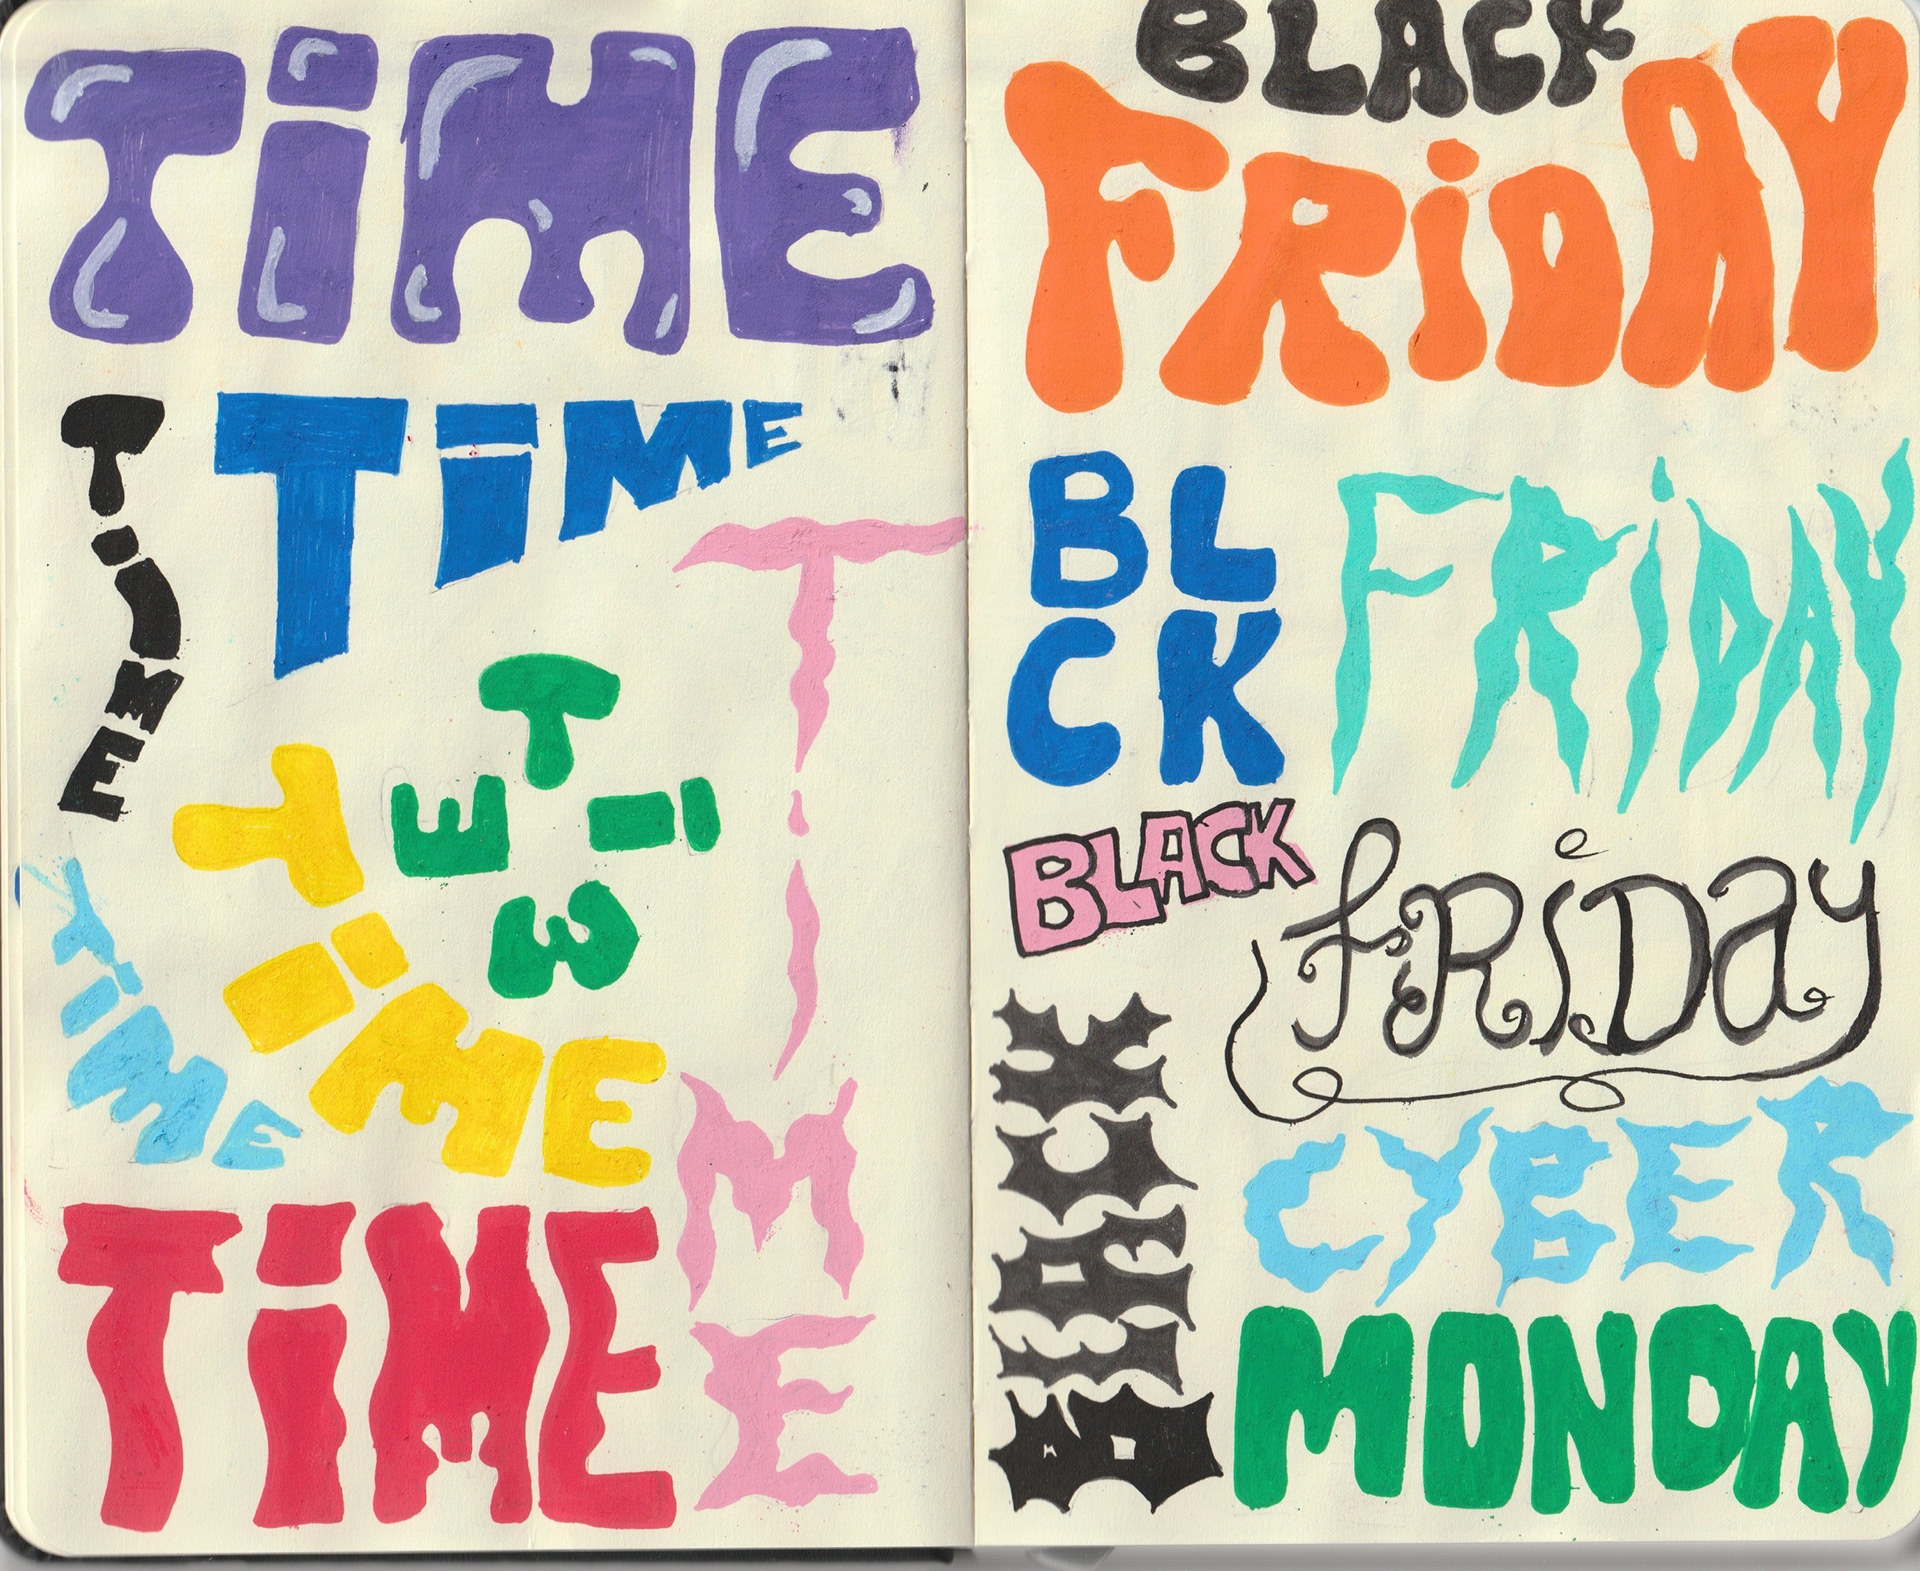 TiME
TiME
TiME
TiME
TiME
TiME
TiME
TiME
BLACK
FRiDAY
BL
CK
FRiDAY
BLACK
fRiDay
BLACK
CYBER
MONDAY